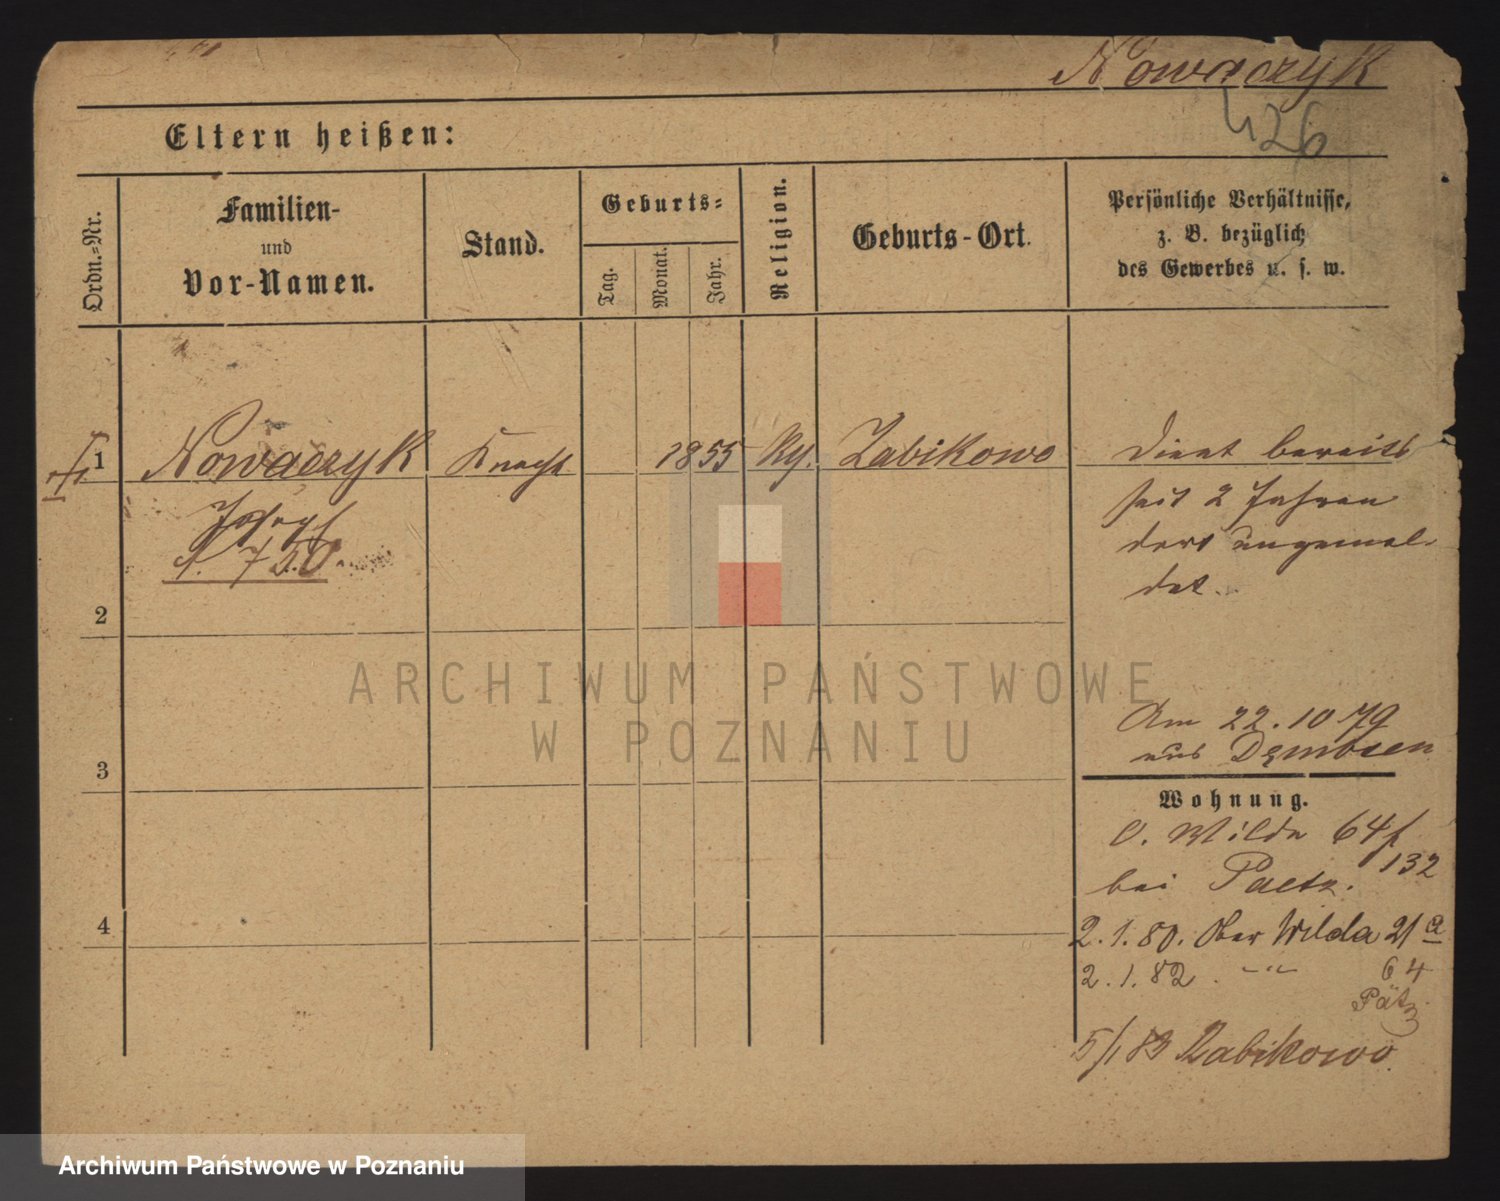 Nowaczyk
426
Eltern heißen:
Ordn.-Nr.
Familien-
und
Vor-Namen.
Stand.
Geburts-
Tag.
Monat.
Jahr.
Religion.
Geburts-Ort.
Persönliche Verhältnisse,
z. B. bezüglich
des Gewerbes u. s. w.
1 Nowaczyk Knecht 1855 Zabikowo
Joseph
750.
2
3
4
Dient bereits
seit 2 Jahren
dort ungemel-
det.
Am 22.10 79
aus Dembsen
Wohnung.
O. Wilda 64
132
bei Paetz.
2.1.80. Ober Wilda 21 a
2.1.82. -"- 64
Pätz
5/1 83 Zabikowo.
ARCHIWUM PAŃSTWOWE
W POZNANIU
Archiwum Państwowe w Poznaniu